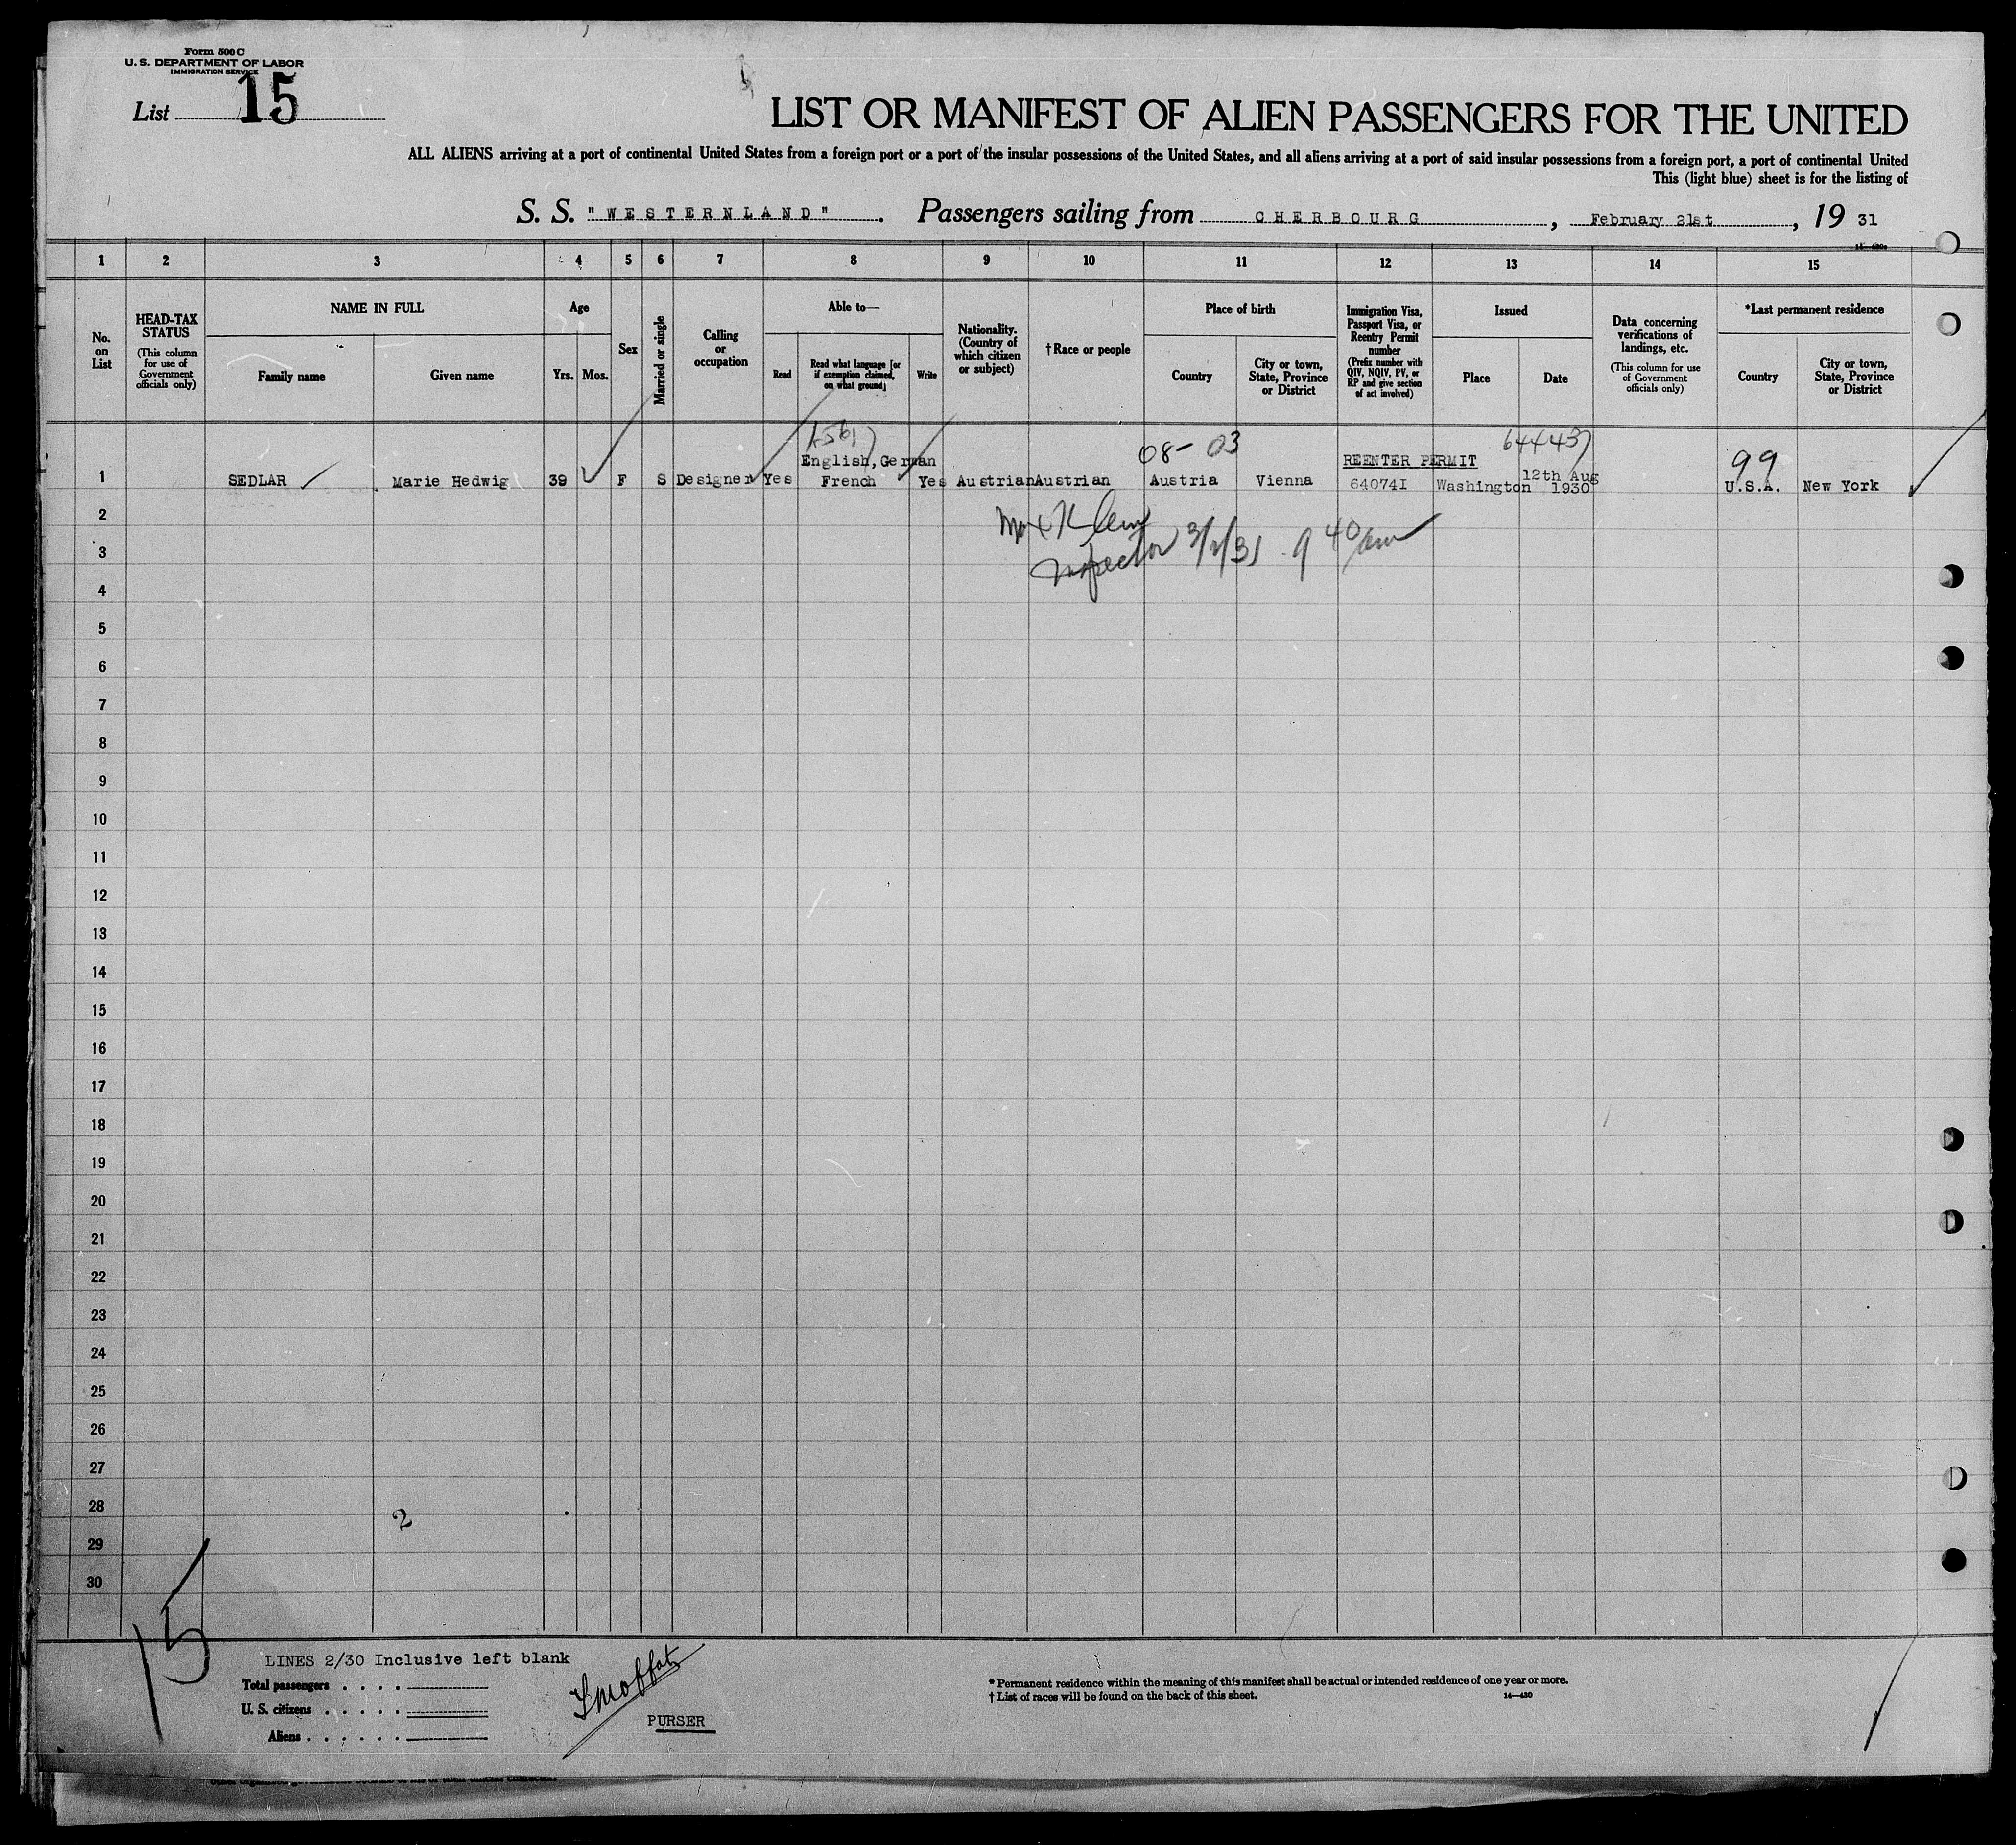 Form 500 C
U. S. DEPARTMENT OF LABOR
IMMIGRATION SERVICE
List 15
LIST OR MANIFEST OF ALIEN PASSENGERS FOR THE UNITED
ALL ALIENS arriving at a port of continental United States from a foreign port or a port of the insular possessions of the United States, and all aliens arriving at a port of said insular possessions from a foreign port, a port of continental United
This (light blue) sheet is for the listing of
S. S. "WESTERNLAND". Passengers sailing from CHERBOURG, February 21st, 19 31
1 2 3 4 5 6 7 8 9 10 11 12 13 14 15
No. on List
HEAD-TAX STATUS
(This column for use of Government officials only)
NAME IN FULL
Family name
Given name
Age
Yrs. Mos.
Sex
Married or single
Calling or occupation
Able to—
Read
Read what language [or if exemption claimed, on what ground]
Write
Nationality. (Country of which citizen or subject)
†Race or people
Place of birth
Country
City or town, State, Province or District
Immigration Visa, Passport Visa, or Reentry Permit number
(Prefix number with QIV, NQIV, PV, or RP and give section of act involved)
Issued
Place
Date
Data concerning verifications of landings, etc.
(This column for use of Government officials only)
*Last permanent residence
Country
City or town, State, Province or District
08- 03
644437
99
1 SEDLAR Marie Hedwig 39 F S Designer Yes English, German French Yes Austrian Austrian Austria Vienna REENTER PERMIT 640741 Washington 12th Aug 1930 U.S.A. New York
2
Max Klein
3
Inspector 3/2/31 9 40 am
4
5
6
7
8
9
10
11
12
13
14
15
16
17
18
19
20
21
22
23
24
25
26
27
28
2
29
30
15
LINES 2/30 Inclusive left blank
Total passengers
U. S. citizens
Aliens
Moffat
PURSER
* Permanent residence within the meaning of this manifest shall be actual or intended residence of one year or more.
† List of races will be found on the back of this sheet.
14—430